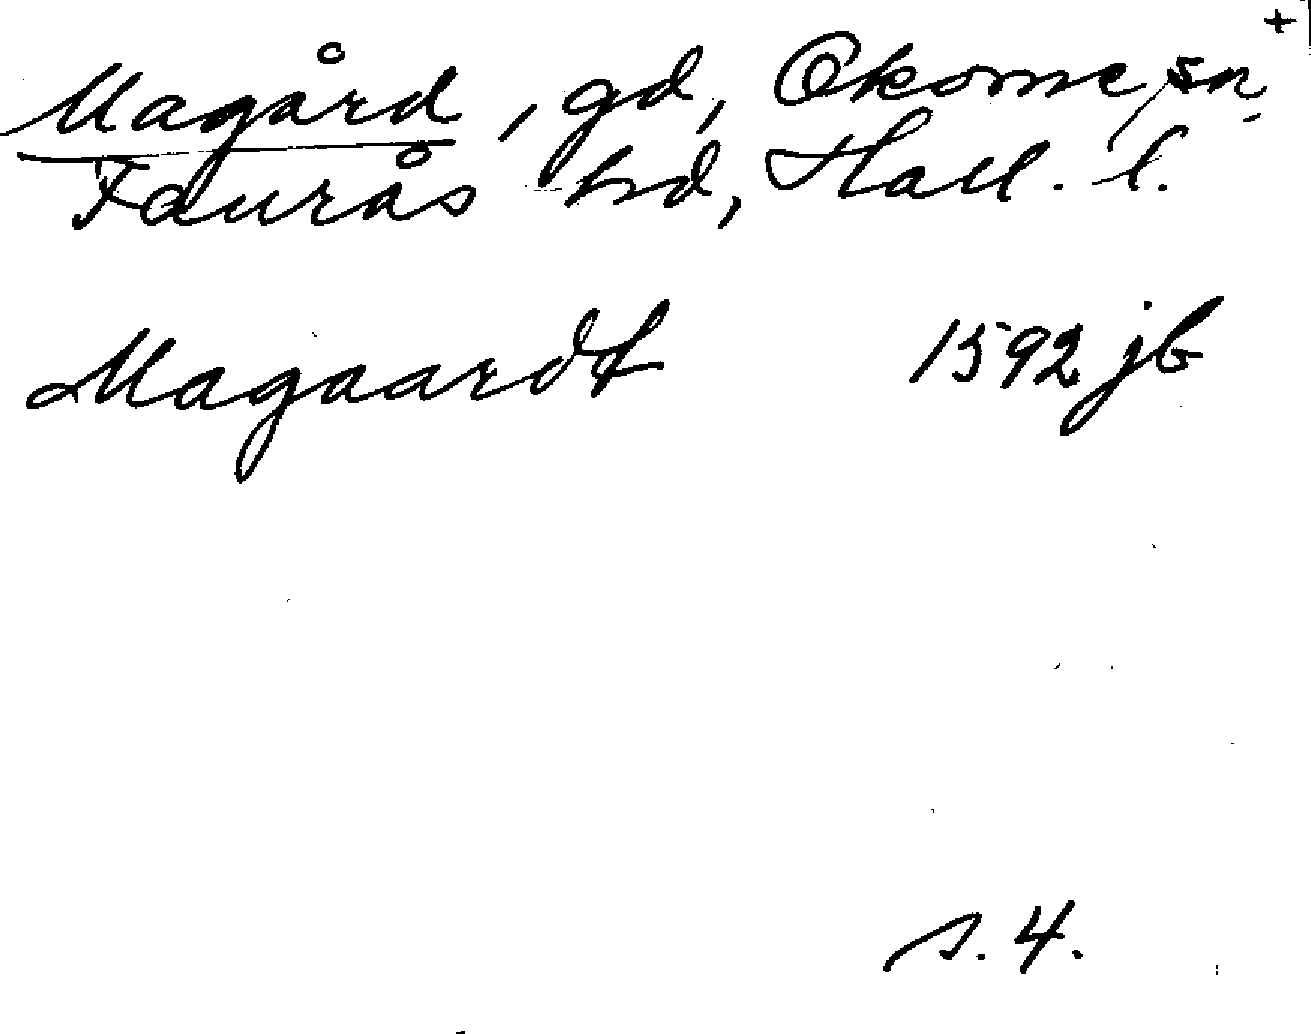 +
Magård, gd, Okome sn,
Faurås hd, Hall. l.
Magaardt 1592 jb
s. 4.